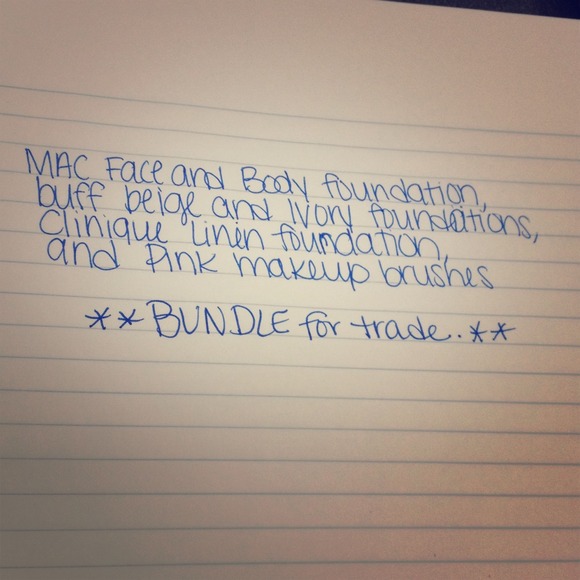 MAC Face and Body foundation,
buff beige and Ivory foundations,
Clinique Linen foundation,
and Pink makeup brushes
**BUNDLE for trade.**